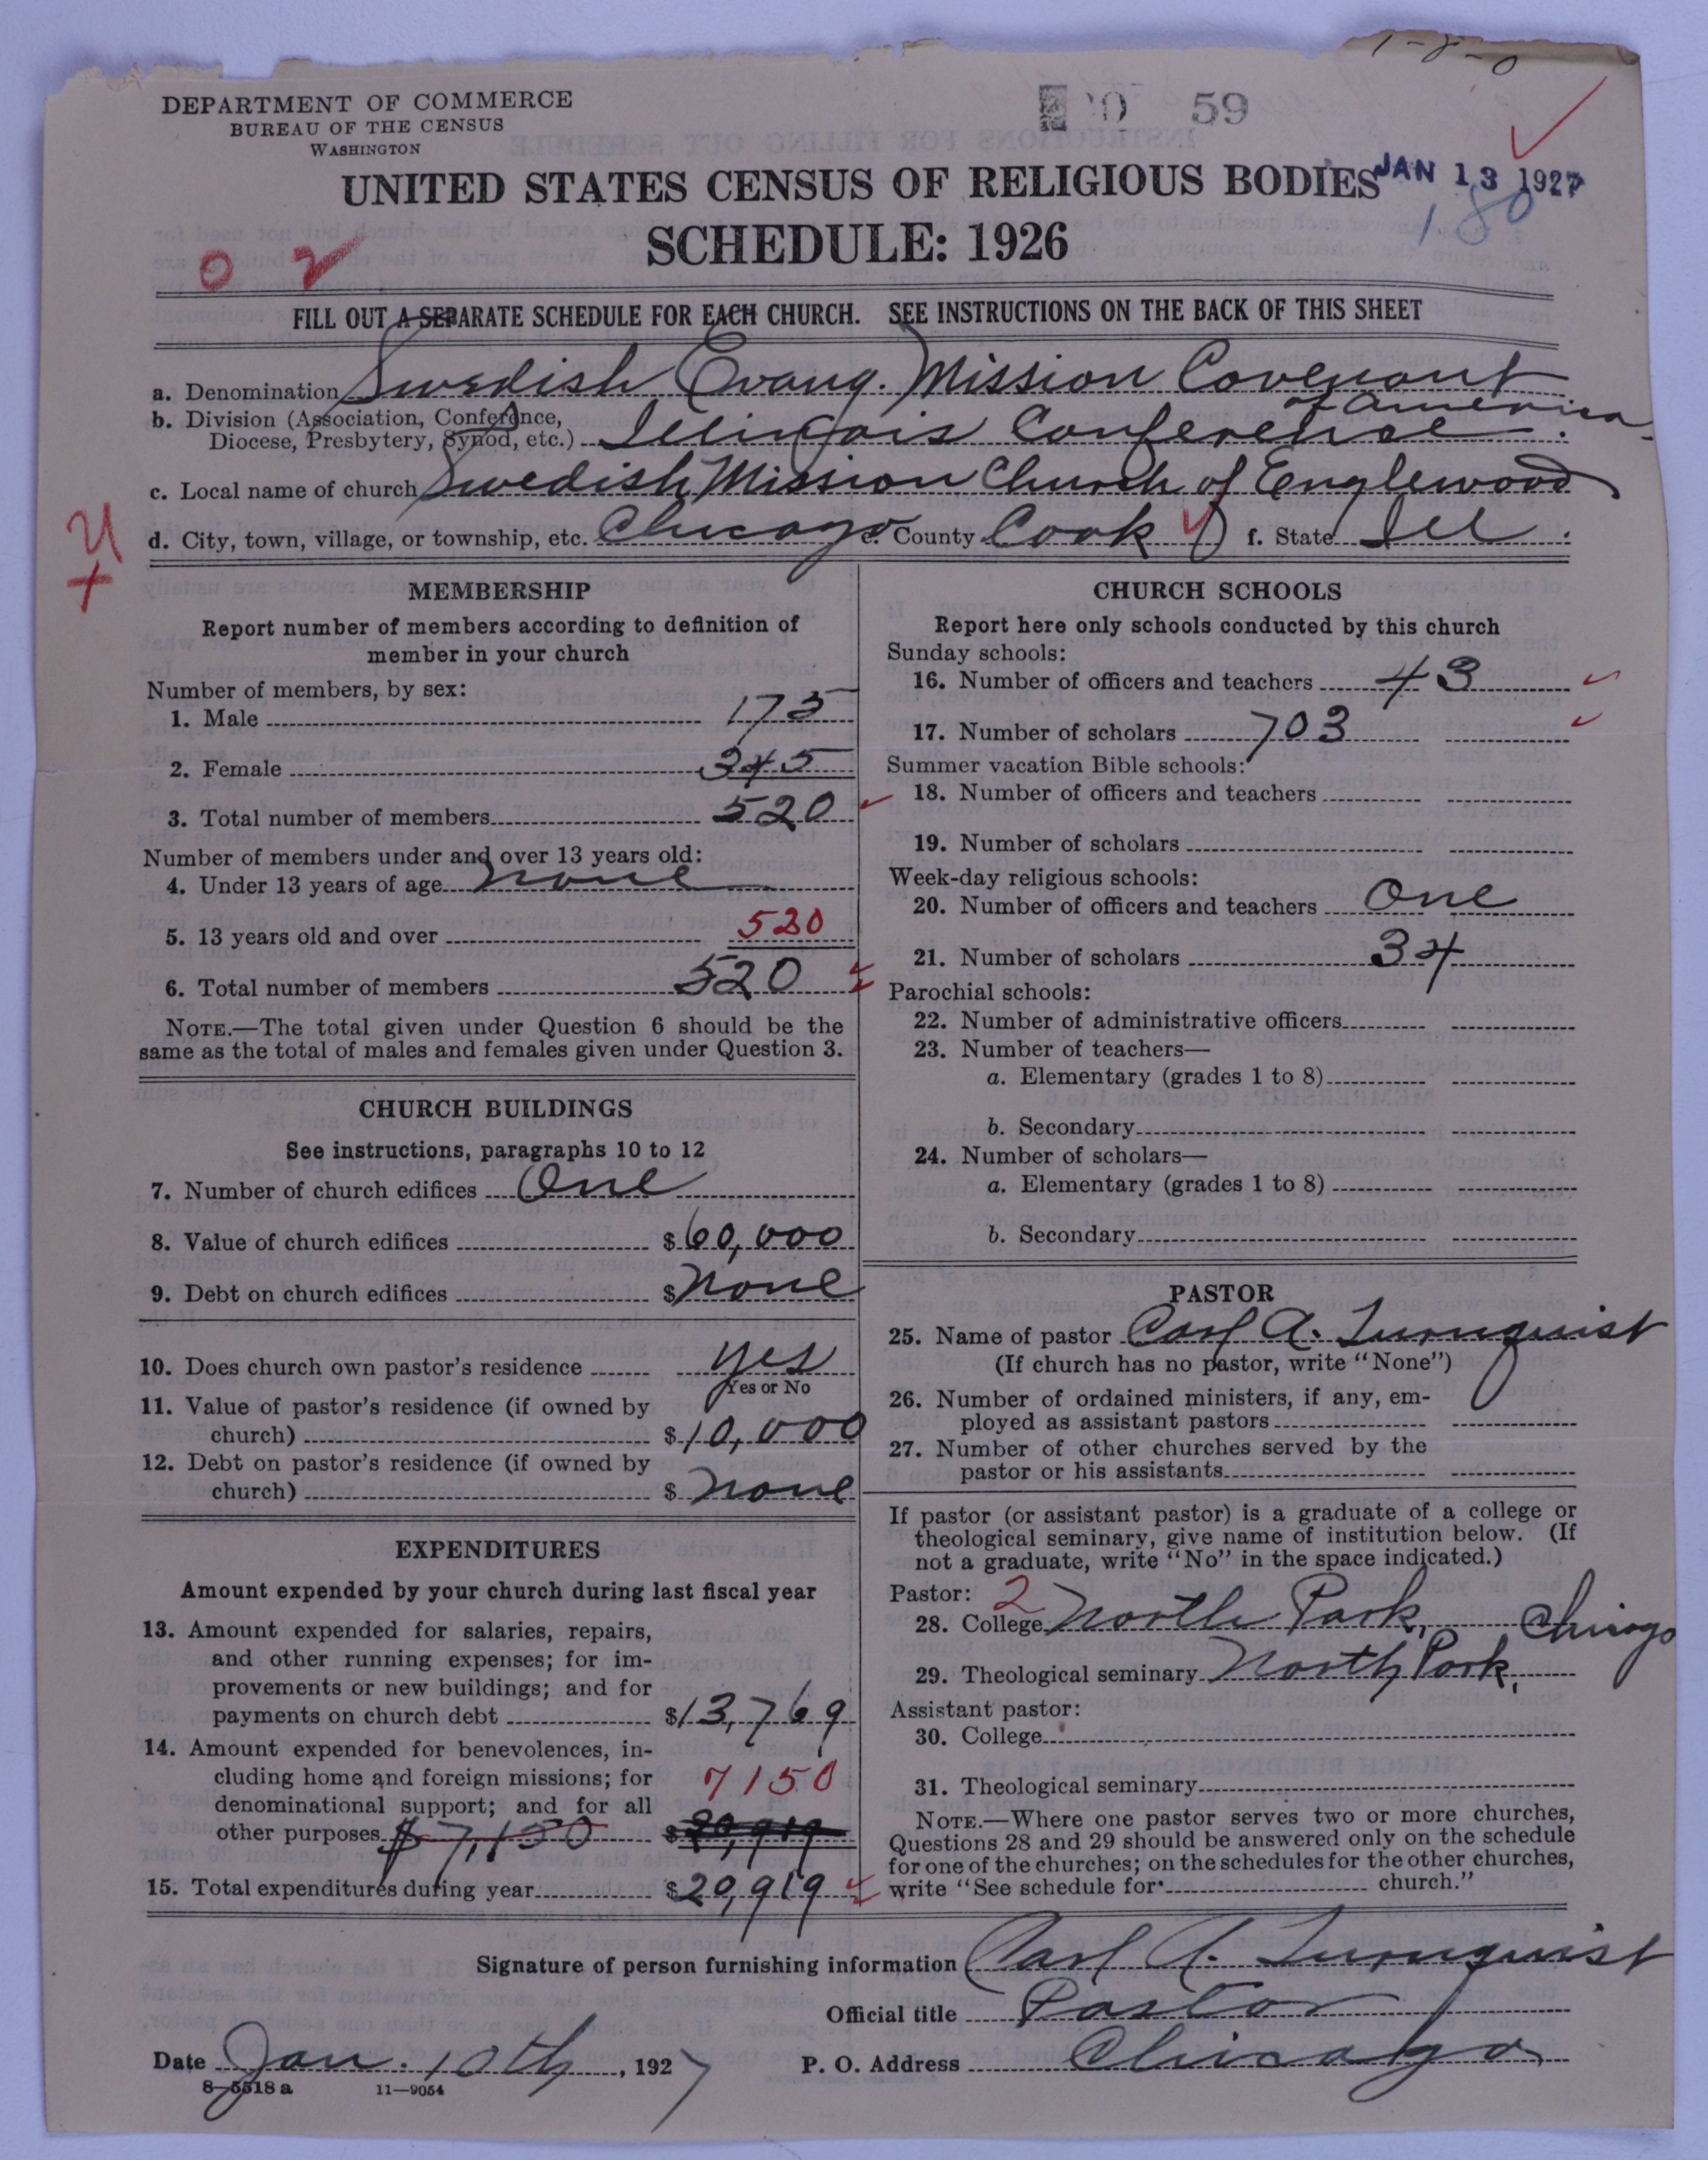 1-8-0
DEPARTMENT OF COMMERCE
BUREAU OF THE CENSUS
WASHINGTON
59
UNITED STATES CENSUS OF RELIGIOUS BODIES
JAN 13 1927
180
SCHEDULE: 1926
0 2
FILL OUT A SEPARATE SCHEDULE FOR EACH CHURCH. SEE INSTRUCTIONS ON THE BACK OF THIS SHEET
a. Denomination Swedish Evang. Mission Covenant of America.
b. Division (Association, Conference, Diocese, Presbytery, Synod, etc.) Illinois Conference
c. Local name of church Swedish Mission Church of Englewood
d. City, town, village, or township, etc. Chicago e. County Cook f. State Ill.
MEMBERSHIP
Report number of members according to definition of
member in your church
Number of members, by sex:
1. Male 175
2. Female 345
3. Total number of members 520
Number of members under and over 13 years old:
4. Under 13 years of age none
5. 13 years old and over 520
6. Total number of members 520
NOTE.—The total given under Question 6 should be the
same as the total of males and females given under Question 3.
CHURCH BUILDINGS
See instructions, paragraphs 10 to 12
7. Number of church edifices One
8. Value of church edifices $60,000
9. Debt on church edifices $none
10. Does church own pastor's residence yes
Yes or No
11. Value of pastor's residence (if owned by
church) $10,000
12. Debt on pastor's residence (if owned by
church) $ none
EXPENDITURES
Amount expended by your church during last fiscal year
13. Amount expended for salaries, repairs,
and other running expenses; for im-
provements or new buildings; and for
payments on church debt $13,769
14. Amount expended for benevolences, in-
cluding home and foreign missions; for 7150
denominational support; and for all
other purposes $7,150 $20,919
15. Total expenditures during year $20,919
CHURCH SCHOOLS
Report here only schools conducted by this church
Sunday schools:
16. Number of officers and teachers 43
17. Number of scholars 703
Summer vacation Bible schools:
18. Number of officers and teachers
19. Number of scholars
Week-day religious schools:
20. Number of officers and teachers One
21. Number of scholars 34
Parochial schools:
22. Number of administrative officers
23. Number of teachers—
a. Elementary (grades 1 to 8)
b. Secondary
24. Number of scholars—
a. Elementary (grades 1 to 8)
b. Secondary
PASTOR
25. Name of pastor Carl A. Turnquist
(If church has no pastor, write "None")
26. Number of ordained ministers, if any, em-
ployed as assistant pastors
27. Number of other churches served by the
pastor or his assistants
If pastor (or assistant pastor) is a graduate of a college or
theological seminary, give name of institution below. (If
not a graduate, write "No" in the space indicated.)
Pastor: 2
28. College North Park, Chicago
29. Theological seminary North Park,
Assistant pastor:
30. College
31. Theological seminary
NOTE.—Where one pastor serves two or more churches,
Questions 28 and 29 should be answered only on the schedule
for one of the churches; on the schedules for the other churches,
write "See schedule for church."
Signature of person furnishing information Carl A. Turnquist
Official title Pastor
Date Jan. 10th, 1927 P. O. Address Chicago
8-5518 a 11-9054